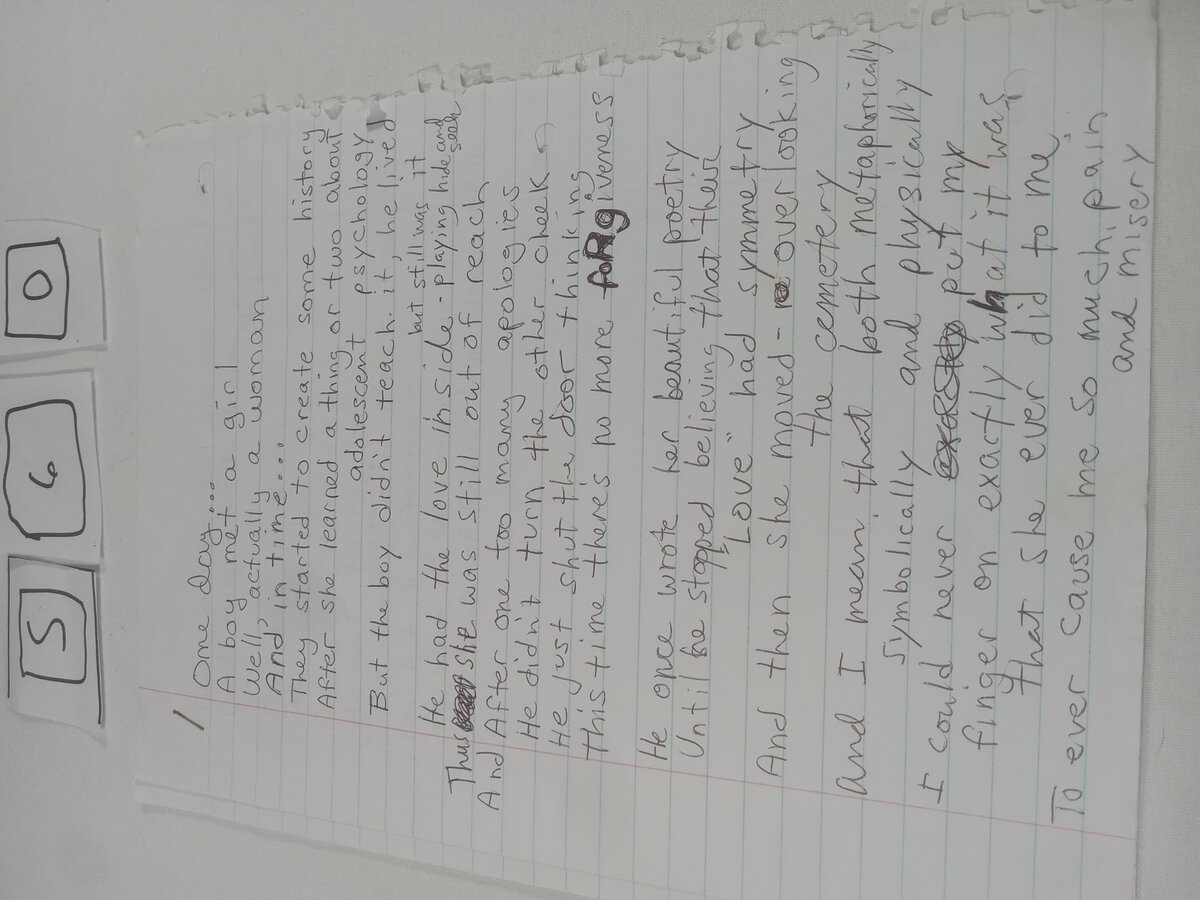 5 6 0
1
One day....
A boy met a girl
Well, actually a woman
And, in time....
They started to create some history
After she learned a thing or two about
adolescent psychology
But the boy didn't teach it, he lived
but still was it
He had the love inside - playing hide and
seek
Thus she was still out of reach
And After one too many apologies
He didn't turn the other cheek
He just shut the door thinking
this time there's no more forgiveness
He once wrote her beautiful poetry
Until he stopped believing that their
"Love" had symmetry
And then she moved - overlooking
the cemetery
and I mean that both metaphorically
symbolically and physically
I could never put my
finger on exactly what it was,
that she ever did to me
To ever cause me so much, pain
and misery